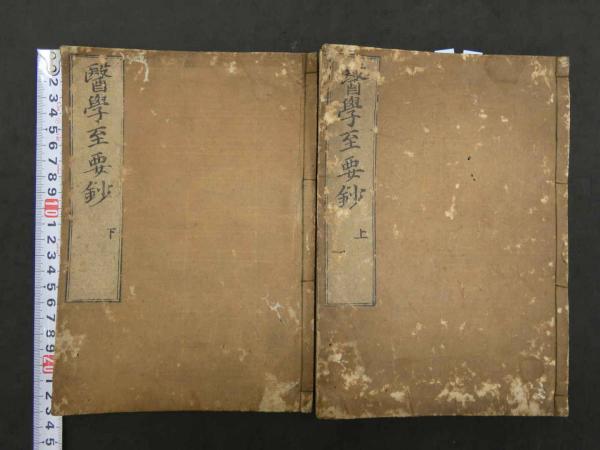 醫學至要鈔
上
醫學至要鈔
下
2
3
4
5
6
7
8
9
10
1
2
3
4
5
6
7
8
9
20
1
2
3
4
5